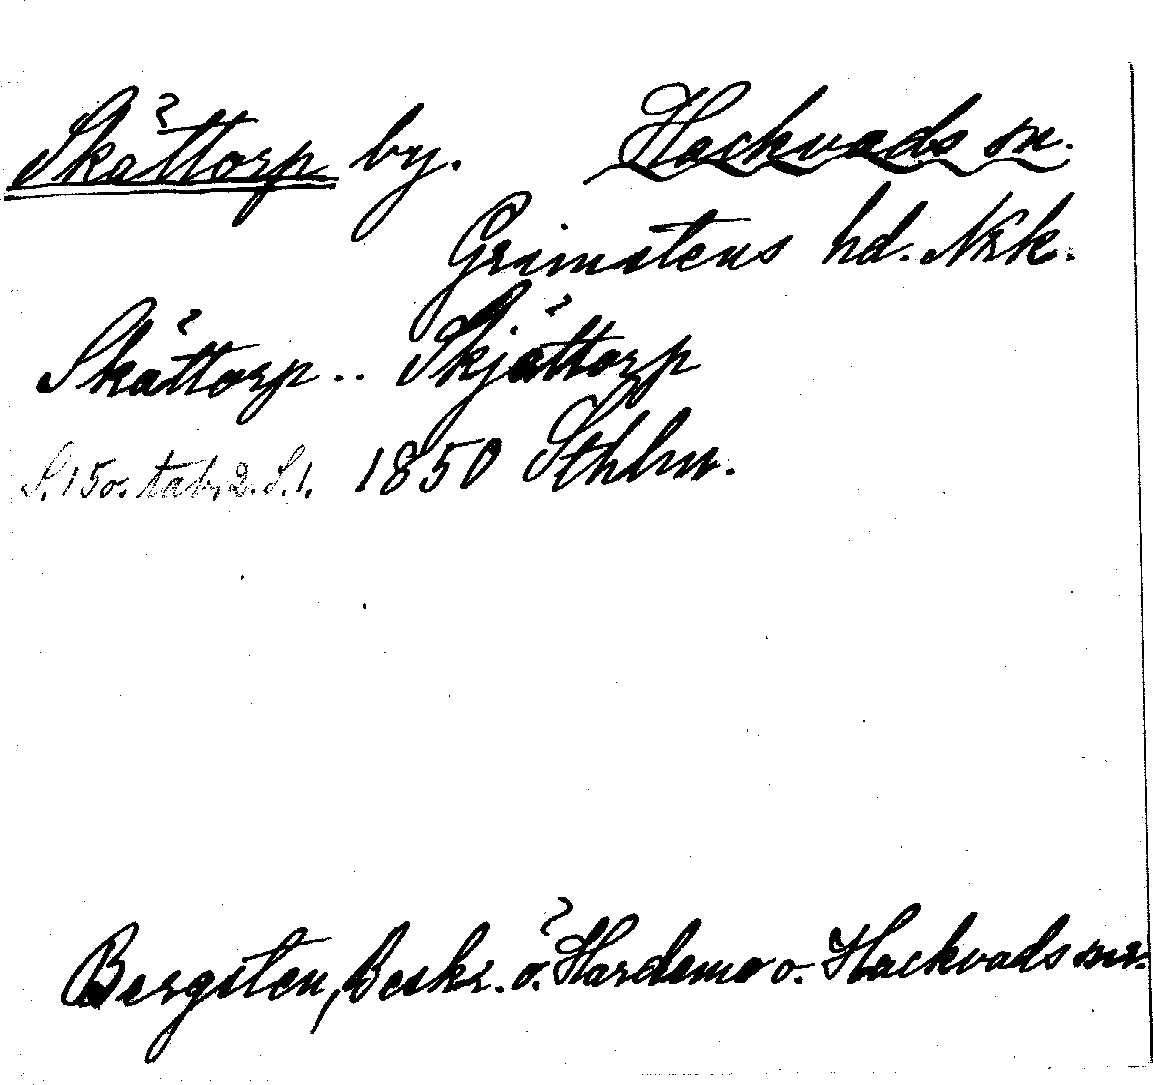 Skättorp by. Hackvads sn.
Grimstens hd. Nrk.
Skättorp .. Skjättorp
S. 150. tab. 2. S. 1. 1850 Sthlm.
Bergsten, Beskr. ö. Hardemo o. Hackvads snr.